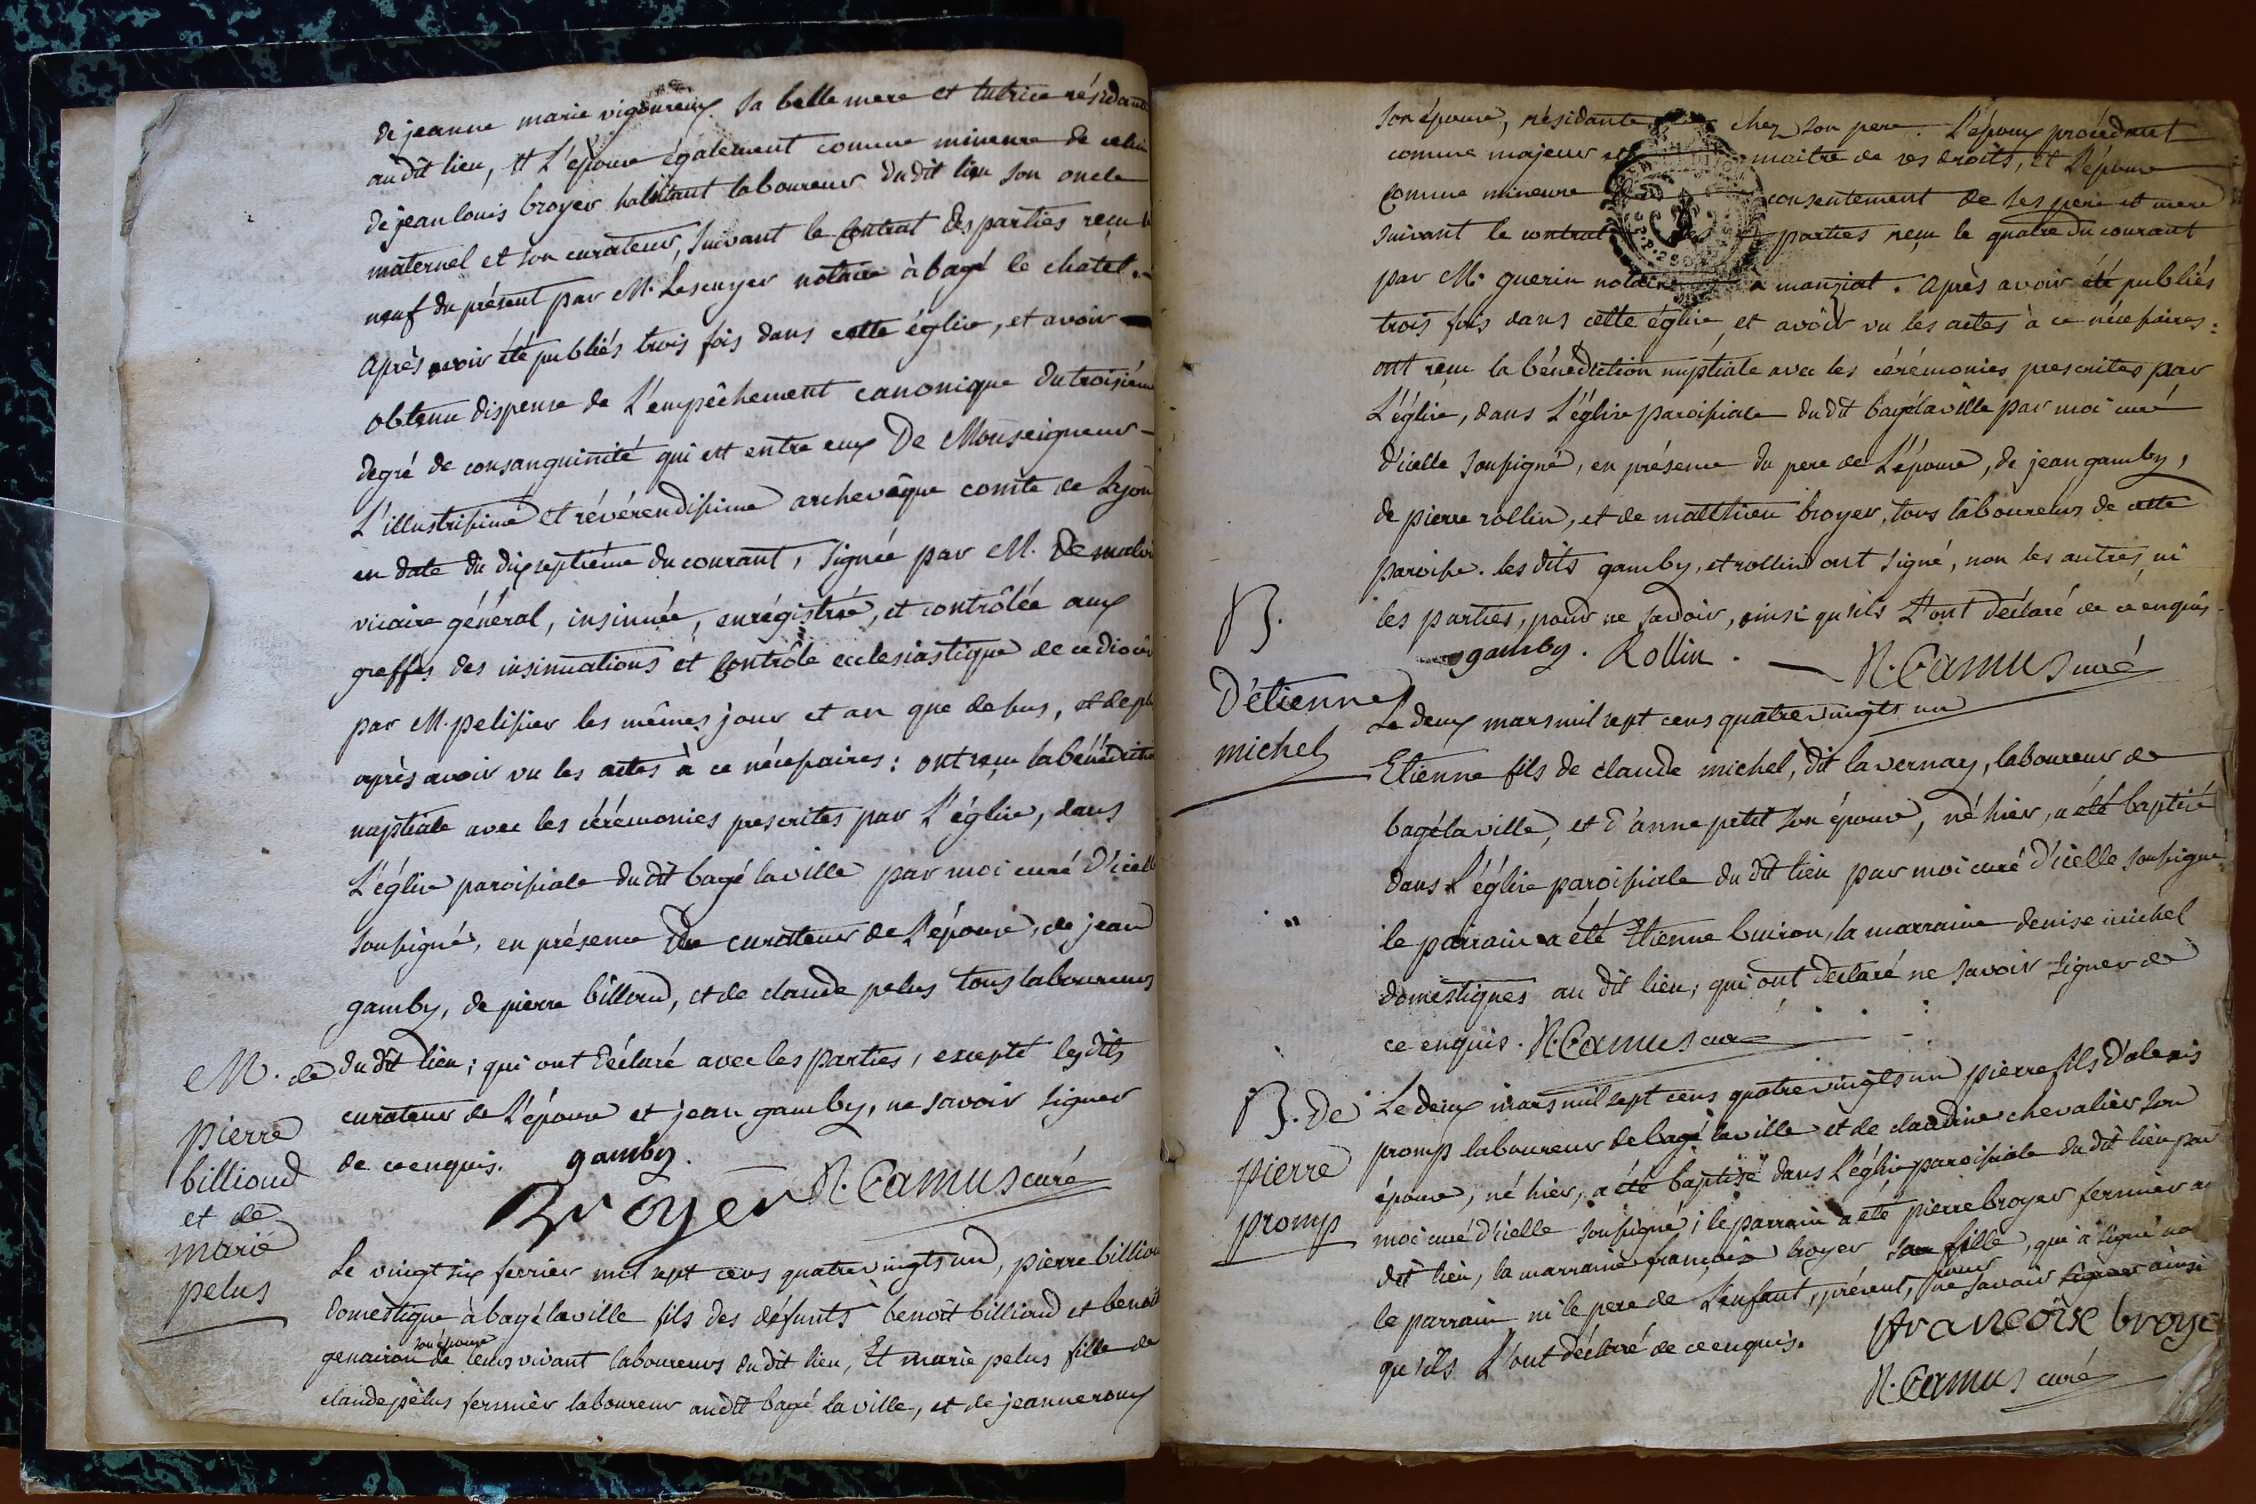 de jeanne marie vigoureux sa belle mere et tutrice résidante
audit lieu, et L'épouse également comme mineure de celui
de jean louis broyer habitant laboureur dudit lieu son oncle
maternel et son curateur, suivant le Contrat des parties reçu le
neuf du présent par M. Lescuyer notaire à bagé le chatel.
Après avoir été publiés trois fois dans cette église, et avoir
obtenu dispense de L'empêchement canonique du troisième
degré de consanguinité qui est entre eux De Monseigneur
L'illustrissime et révérendissime archevêque comte de Lyon
en date du dixseptiéme du courant, signée par M. De
vicaire général, insinuée, enrégistrée, et contrôlée aux
greffes des insinuations et Contrôle ecclesiastique de ce diocèse
par M. pelissier les mêmes jour et an que dessus, et de plus
après avoir vu les actes à ce nécessaires: ont reçu la bénédiction
nuptiale avec les cérémonies prescrites par L'église, dans
L'église paroissiale dudit bagé laville par moi curé d'icelle
soussigné, en présence du curateur de L'épouse, de jean
gamby, de pierre billoud, et de claude pelus tous laboureurs
dudit lieu; qui ont déclaré avec les parties, excepté lesdits
curateur de L'épouse et jean gamby, ne savoir signer
de ce enquis. gamby.
Broyer N. Camus curé
M. de
pierre
billioud
et de
marie
pelus
Le vingt six fevrier mil sept cens quatrevingts un, pierre billioud
domestique à bagé laville fils des défunts benoit billioud et benoite
son épouse
genairon de leurs vivant laboureurs dudit lieu, Et marie pelus fille de
claude pelus fermier laboureur audit bagé laville, et de jeanne roux
son épouse, résidante chez son pere. L'époux procédant
comme majeur et maitre de ses droits, et L'épouse
Comme mineure consentement de ses pere et mere
suivant le contrat des parties reçu le quatre du courant
par M. guerin notaire à manziat. Après avoir été publiés
trois fois dans cette église, et avoir vu les actes à ce nécessaires:
ont reçu la bénédiction nuptiale avec les cérémonies prescrites par
L'église, dans L'église paroissiale dudit bagélaville par moi curé
d'icelle soussigné, en présence du pere de L'épouse, de jean gamby,
de pierre rollin, et de matthieu broyer, tous laboureurs de cette
paroisse. lesdits gamby, et rollin ont signé, non les autres, ni
les parties, pour ne savoir, ainsi qu'ils L'ont déclaré de ce enquis.
gamby. Rollin. N. Camus curé
B.
D'étienne
michel
Le deux mars mil sept cens quatrevingts un
Etienne fils de claude michel, dit lavernay, laboureur de
bagélaville, et d'anne petit son épouse, né hier, a été baptisé
dans L'église paroissiale dudit lieu par moi curé d'icelle soussigné
le parrain a été Etienne buiron, la marraine denise michel
domestiques au dit lieu; qui ont déclaré ne savoir signer de
ce enquis. N. Camus curé
B. de
pierre
promp
Le deux mars mil sept cens quatrevingts un pierre fils d'alexis
promp laboureur de bagé laville et de claudine chevalier son
épouse, né hier, a été baptisé dans L'église paroissiale dudit lieu par
moi curé d'icelle soussigné; le parrain a été pierre broyer fermier au
dit lieu, la marraine françoise broyer sa fille, qui a signé non
le parrain ni le pere de L'enfant, présent, pour ne savoir signer ainsi
qu'ils L'ont déclaré de ce enquis. françoise broye
N. Camus curé